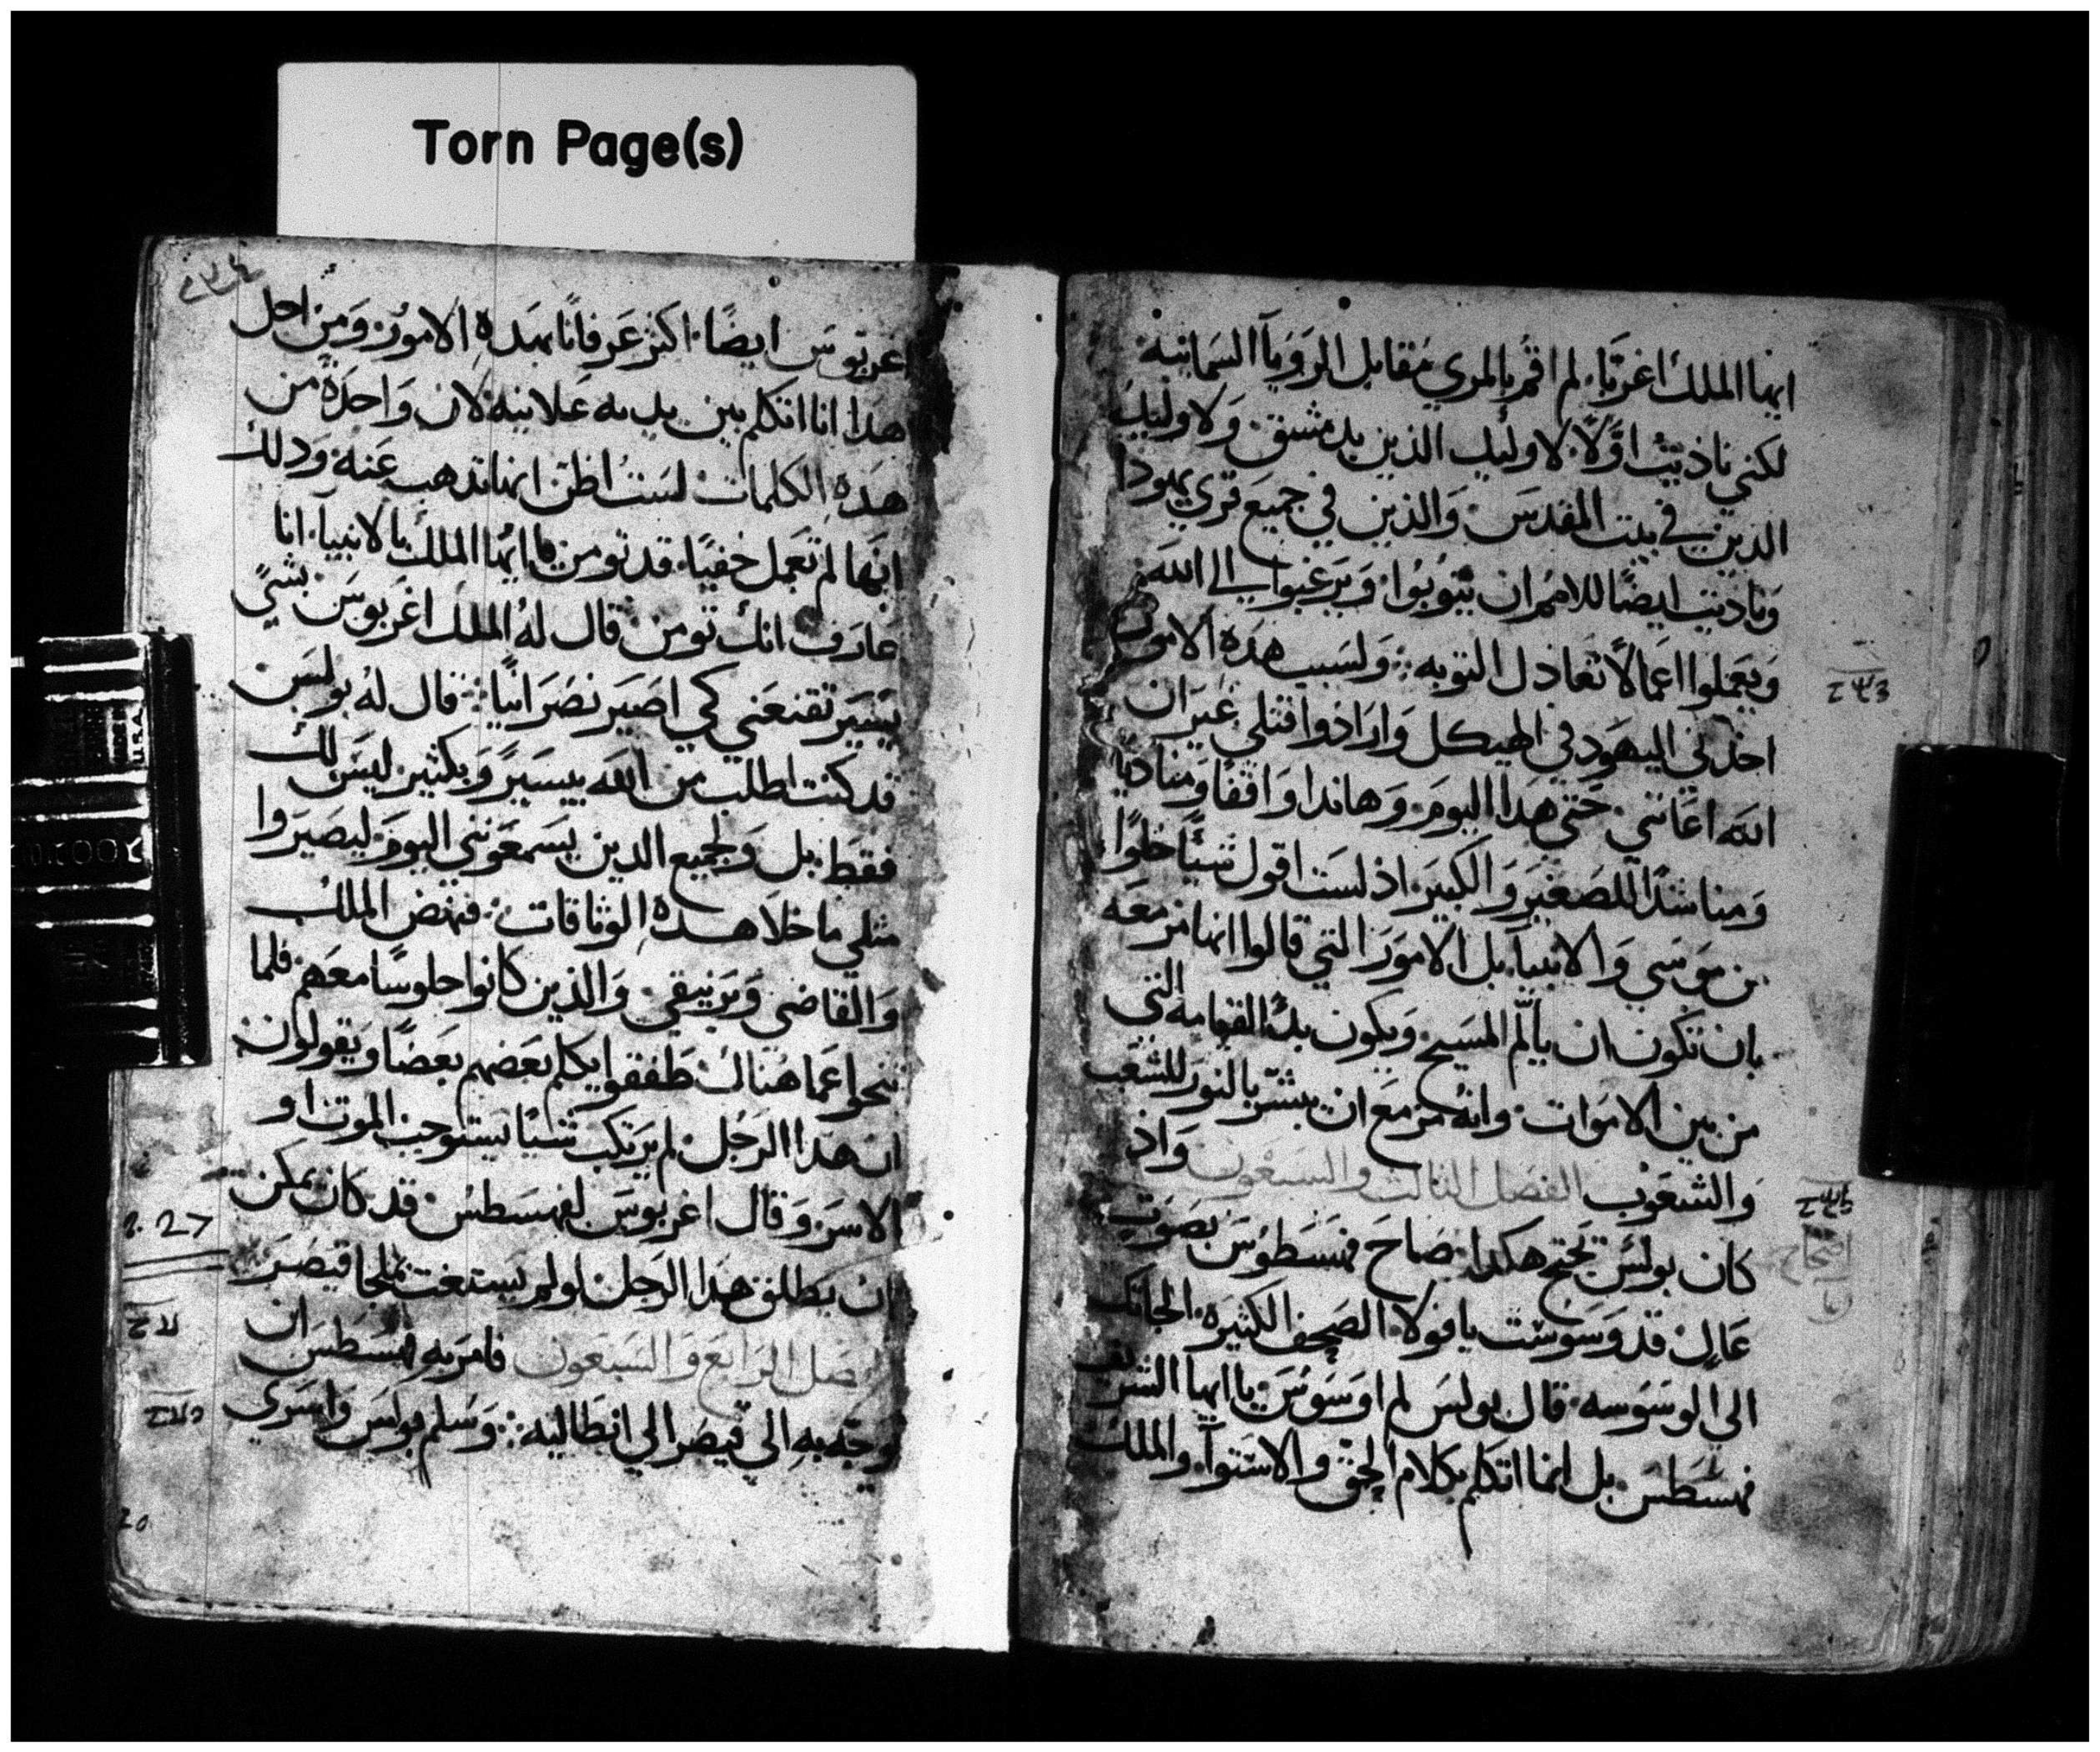 Torn Page(s)
ايها الملك اغربا. لم اقم بالمري مقابل الرويا السمانيه
لكني ناديت اولا لاوليك الذين بدمشق. ولاوليك
الذين في بيت المقدس. والذين في جميع قري يهودا
وناديت ايضا للامم ان يتوبوا. ويرغبوا الي الله.
ويعملوا اعمالا تعادل التوبه: ولسبب هده الامور
اخدني اليهود في الهيكل وارادوا قتلي غير ان
الله اعانني. حتي هدا اليوم. وهاندا واقفا ومناديا
ومناشدا للصغير والكبير. اذ لست اقول شيا خلوا
من موسي والانبيا. بل الامور التي قالوا انها مزمعه
بان تكون ان يالم المسيح. ويكون بدء القيامه التي
من بين الاموات. وانه مزمع ان يبشر بالنور للشعب
والشعوب الفصل الثالث والسبعون واذ
كان بولس يحتج هكدا. صاح فهسطوس بصوت
عال قد وسوست يا فولا. الصحف الكثيره. الجاتك
الي الوسوسه. قال بولس لم اوسوس يا ايها الشريف
فهسطس. بل انما اتكلم بكلام الحق والاستوا. والملك
اغربوس ايضا. اكثر عرفانا بهده الامور. ومن اجل
هدا انا اتكلم بين يديه علانيه. لان واحدة من
هده الكلمات لست اظن انها تدهب عنه. ودلك
انها لم تعمل خفيا. قد تومن يا ايها الملك بالانبيا. انا
عارف انك تومن. قال له الملك اغربوس. بشي
يسير تقنعني كي اصير نصرانيا: قال له بولس
قد كنت اطلب من الله بيسير وبكثير. ليس لك
فقط. بل ولجميع الدين يسمعونني اليوم. ليصيروا
مثلي ما خلا هده الوثاقات: فنهض الملك
والقاضي وبرنيقي. والذين كانوا جلوسا معهم. فلما
تنحوا عما هناك طفقوا يكلم بعضهم بعضا ويقولون
ان هدا الرجل لم يرتكب شيا يستوجب الموت او
الاسر. وقال اغربوس لفهسطس. قد كان يمكن
ان يطلق هدا الرجل. لو لم يستغث بملجا قيصر
صل الرابع والسبعون فامر به فهسطس ان
يوجه به الي قيصر الي انطاليه: وسلم بولس واسري
27
20